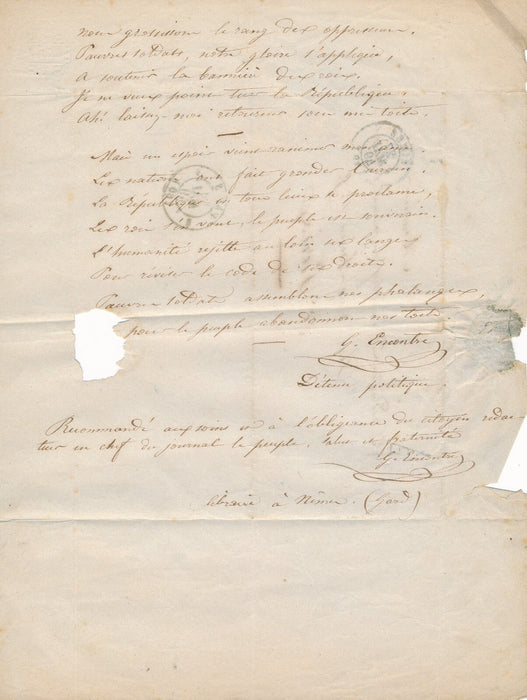 nous grossissons le rang des oppresseurs.
Pauvres soldats, notre gloire s'applique,
A soutenir la bannière des rois.
Je ne veux point tuer la République.
Ah! laissez-moi retourner sous mes toits.
Mais un espoir vient ranimer mon âme.
Les nations ont fait gronder l'airain.
La République en tous lieux se proclame,
Les rois s'en vont, le peuple est souverain.
L'humanité rejette au loin ses langes
Pour réviser le code de ses droits.
Pauvres soldats assemblons nos phalanges,
pour le peuple abandonnons nos toits.
G. Encontre
Détenu politique.
Recommandé aux soins et à l'obligeance du citoyen rédac-
teur en chef du journal le peuple. Salut et fraternité
G. Encontre
libraire à Nîmes. (Gard)